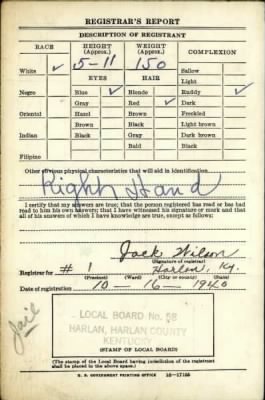 REGISTRAR'S REPORT
DESCRIPTION OF REGISTRANT
RACE HEIGHT (Approx.) WEIGHT (Approx.) COMPLEXION
5-11 150
White ✓ Sallow
EYES HAIR Light
Negro Blue ✓ Blonde Ruddy ✓
Gray Red ✓ Dark
Oriental Hazel Brown Freckled
Brown Black Light brown
Indian Black Gray Dark brown
Bald Black
Filipino
Other obvious physical characteristics that will aid in identification
Right Hand
I certify that my answers are true; that the person registered has read or has had
read to him his own answers; that I have witnessed his signature or mark and that
all of his answers of which I have knowledge are true, except as follows:
Jack Wilson
(Signature of registrar)
Registrar for # 1 Harlan, Ky.
(Precinct) (Ward) (City or county) (State)
Date of registration 10-16-1940
Jail
LOCAL BOARD No. 58
HARLAN, HARLAN COUNTY
KENTUCKY
(STAMP OF LOCAL BOARD)
(The stamp of the Local Board having jurisdiction of the registrant
shall be placed in the above space.)
U. S. GOVERNMENT PRINTING OFFICE 16-17105